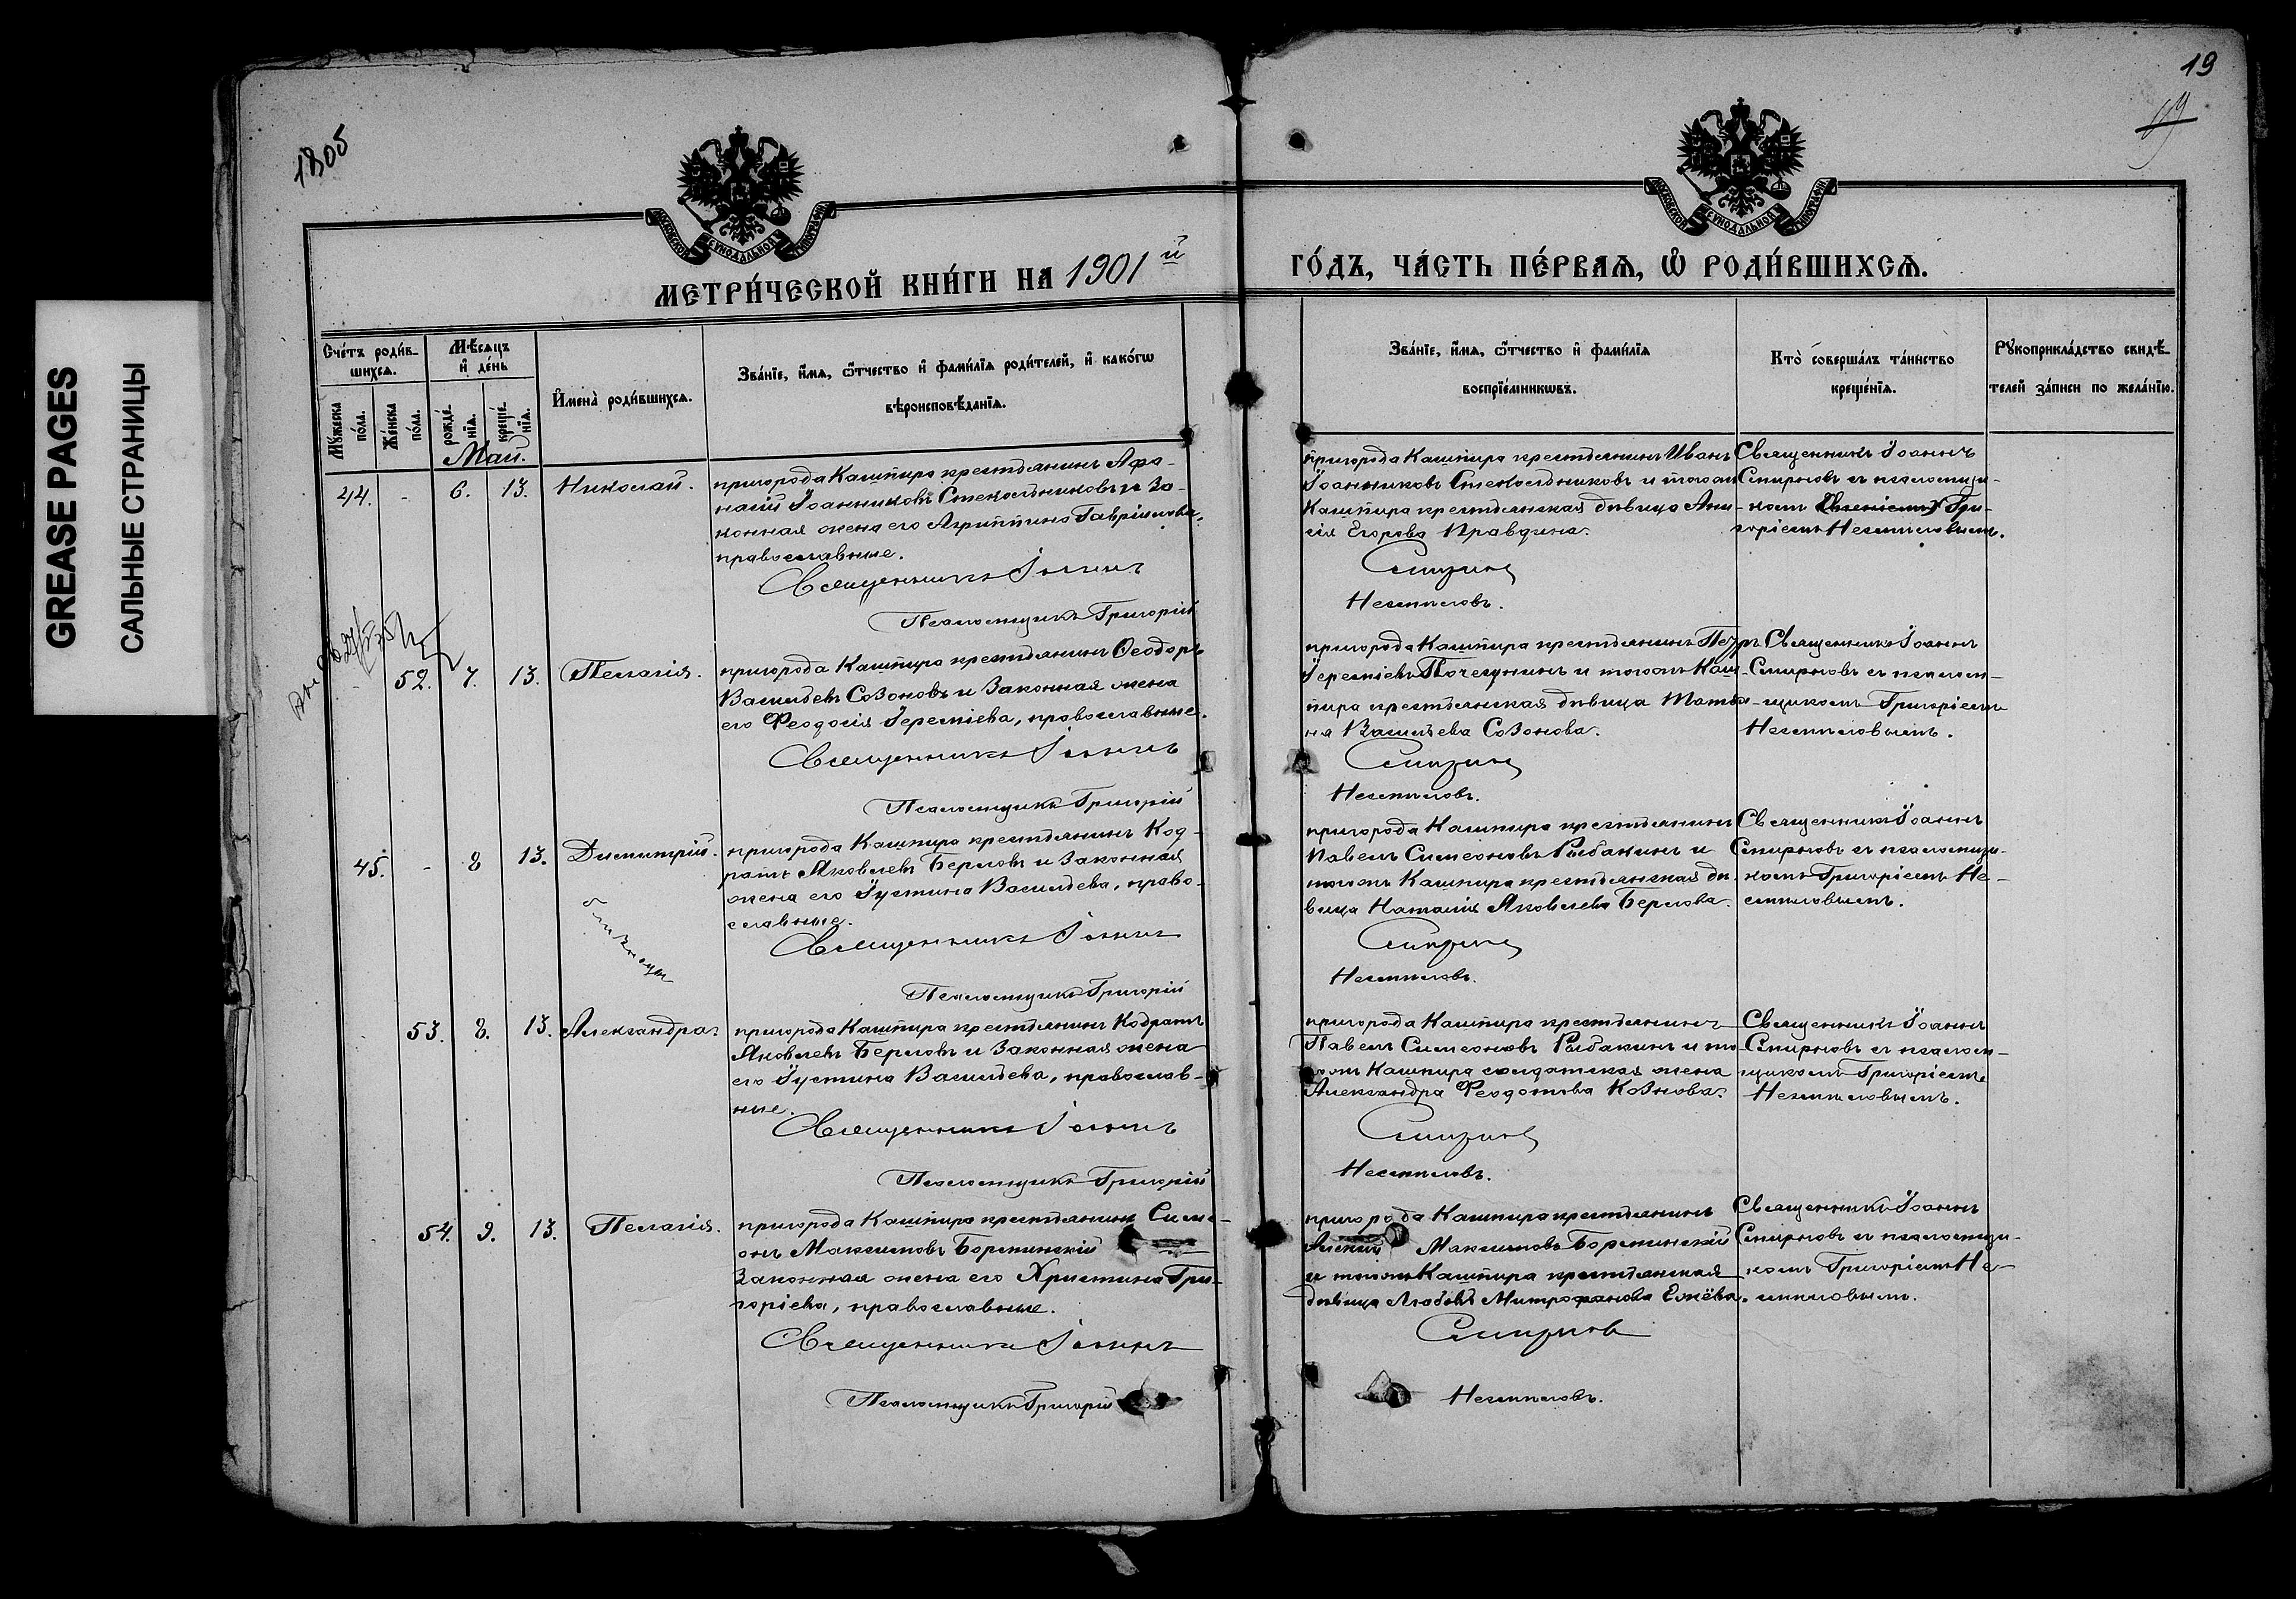 GREASE PAGES
САЛЬНЫЕ СТРАНИЦЫ
1305
19
МОСКОВСКОЙ СУНОДАЛЬНОЙ ТИПОГРАФІИ
МОСКОВСКОЙ СУНОДАЛЬНОЙ ТИПОГРАФІИ
МЕТРИ́ЧЕСКОЙ КНИ́ГИ НА 1901й
ГО́ДЪ, ЧА́СТЬ ПЕ́РВАѦ, Ѡ҆ РОДИ́ВШИХСѦ.
Сче́тъ роди́в-
шихсѧ.
Мѣ́сѧцъ
и҆ де́нь
Мꙋ́жеска
по́ла.
Же́нска
по́ла.
рожде́-
нїѧ.
креще́-
нїѧ.
И҆мена̀ роди́вшихсѧ.
Зва́нїе, и҆́мѧ, ѻ҆́тчество и҆ фами́лїѧ роди́телей, и҆ како́гѡ
вѣроисповѣ́данїѧ.
Зва́нїе, и҆́мѧ, ѻ҆́тчество и҆ фами́лїѧ
воспрїе́мникѡвъ.
Кто̀ соверша́лъ та́инство
креще́нїѧ.
Рꙋкоприкла́дство свидѣ́-
телей за́писи по жела́нїю.
Май.
44. - 6. 13. Николай.
пригорода Кашпира крестьянинъ Афа-
насій Іоанниковъ Стекольниковъ и За-
конная жена его Агриппина Гавріилова,
православные.
Священникъ Іоаннъ
Псаломщикъ Григорій
пригорода Кашпира крестьянинъ Иванъ
Іоанниковъ Стекольниковъ и тогожъ
Кашпира крестьянская дѣвица Ани-
сія Егорова Правдина.
Смирновъ
Несмѣловъ.
Священникъ Іоаннъ
Смирновъ съ псаломщи-
комъ Гри-
горіемъ Несмѣловымъ.
- 52. 7. 13. Пелагія.
пригорода Кашпира крестьянинъ Ѳеодоръ
Васильевъ Созоновъ и Законная жена
его Феодосія Іереміева, православные.
Священникъ Іоаннъ
Псаломщикъ Григорій
пригорода Кашпира крестьянинъ Петръ
Іереміевъ и тогожъ Каш-
пира крестьянская дѣвица Татья-
на Васильева Созонова.
Смирновъ
Несмѣловъ.
Священникъ Іоаннъ
Смирновъ съ псалом-
щикомъ Григоріемъ
Несмѣловымъ.
45. - 8 13. Димитрій.
близнецы
пригорода Кашпира крестьянинъ Код-
ратъ Яковлевъ Берловъ и Законная
жена его Іустина Васильева, право-
славные.
Священникъ Іоаннъ
Псаломщикъ Григорій
пригорода Кашпира крестьянинъ
Павелъ Симеоновъ Рыбакинъ и
тогожъ Кашпира крестьянская дѣ-
вица Наталія Яковлева Берлова.
Смирновъ
Несмѣловъ.
Священникъ Іоаннъ
Смирновъ съ псаломщи-
комъ Григоріемъ Не-
смѣловымъ.
53. 8. 13. Александра.
пригорода Кашпира крестьянинъ Кодратъ
Яковлевъ Берловъ и Законная жена
его Іустина Васильева, православ-
ные.
Священникъ Іоаннъ
Псаломщикъ Григорій
пригорода Кашпира крестьянинъ
Павелъ Симеоновъ Рыбакинъ и то-
гожъ Кашпира солдатская жена
Александра Феодотова Козлова.
Смирновъ
Несмѣловъ.
Священникъ Іоаннъ
Смирновъ съ псалом-
щикомъ Григоріемъ
Несмѣловымъ.
54. 9. 13. Пелагія.
пригорода Кашпира крестьянинъ Симе-
онъ Максимовъ
Законная жена его Христина Гри-
горіева, православные.
Священникъ Іоаннъ
Псаломщикъ Григорій
пригорода Кашпира крестьянинъ
Максимовъ
и тогожъ Кашпира крестьянская
дѣвица Любовь Митрофанова Ежёва.
Смирновъ
Несмѣловъ.
Священникъ Іоаннъ
Смирновъ съ псаломщи-
комъ Григоріемъ Не-
смѣловымъ.